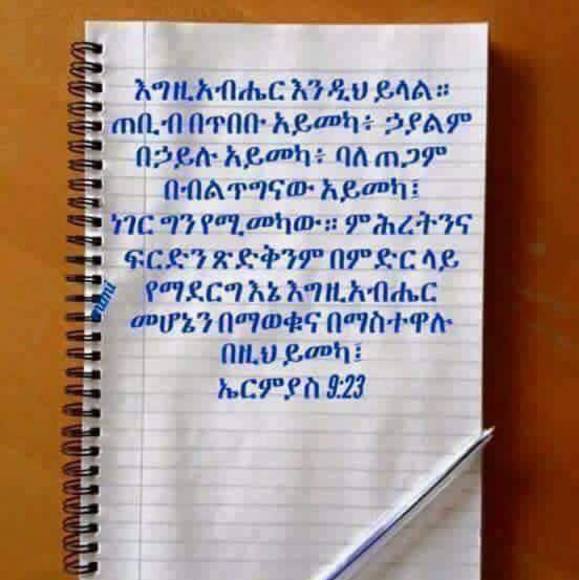 እግዚአብሔር እንዲህ ይላል።
ጠቢብ በጥበቡ አይመካ፥ ኃያልም
በኃይሉ አይመካ፥ ባለ ጠጋም
በብልጥግናው አይመካ፤
ነገር ግን የሚመካው። ምሕረትንና
ፍርድን ጽድቅንም በምድር ላይ
የማደርግ እኔ እግዚአብሔር
መሆኔን በማወቁና በማስተዋሉ
በዚህ ይመካ፤
ኤርምያስ 9:23